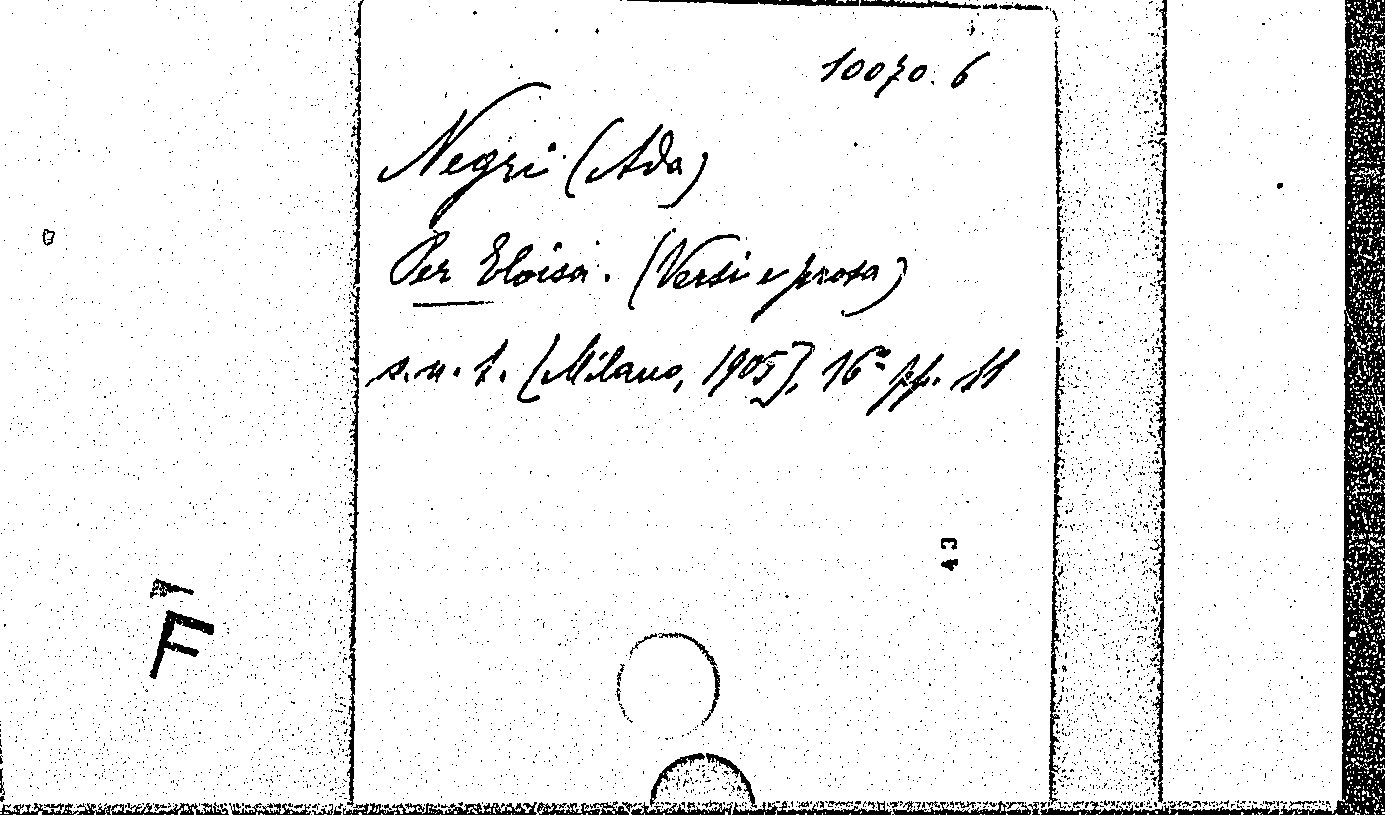 10070. 6
Negri (Ada)
Per Eloisa. (Versi e prosa)
s. n. t. [Milano, 1905], 16° pp. 11
43
F